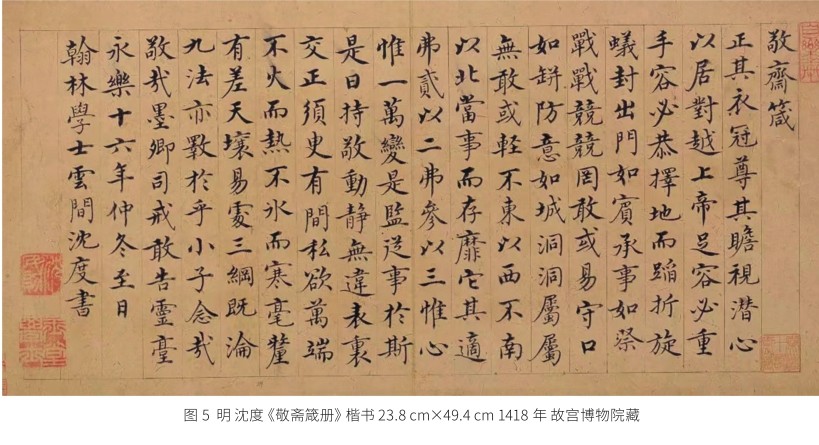 敬齋箴
正其衣冠尊其瞻視潛心
以居對越上帝足容必重
手容必恭擇地而蹈折旋
蟻封出門如賓承事如祭
戰戰兢兢罔敢或易守口
如缾防意如城洞洞屬屬
無敢或輕不東以西不南
以北當事而存靡它其適
弗貳以二弗參以三惟心
惟一萬變是監從事於斯
是曰持敬動靜無違表裏
交正須臾有間私欲萬端
不火而熱不氷而寒毫釐
有差天壤易處三綱既淪
九法亦斁於乎小子念哉
敬哉墨卿司戒敢告靈臺
永樂十六年仲冬至日
翰林學士雲間沈度書
图 5 明 沈度《敬斋箴册》楷书 23.8 cm×49.4 cm 1418 年 故宫博物院藏